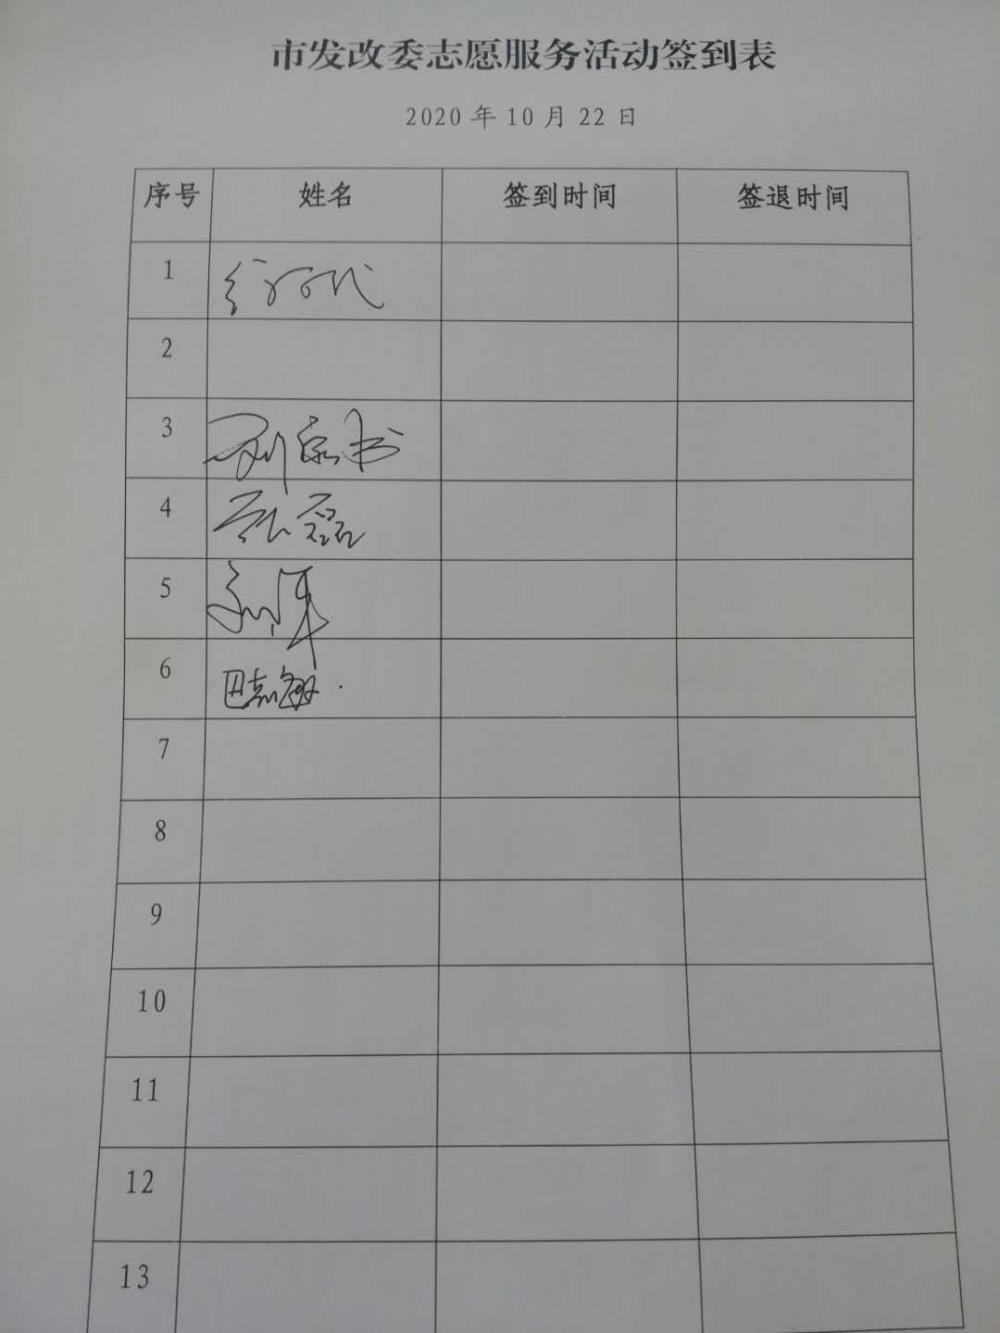 市发改委志愿服务活动签到表
2020年10月22日
序号 姓名 签到时间 签退时间
1
2
3 刘
4 磊
5
6 巴志敏
7
8
9
10
11
12
13